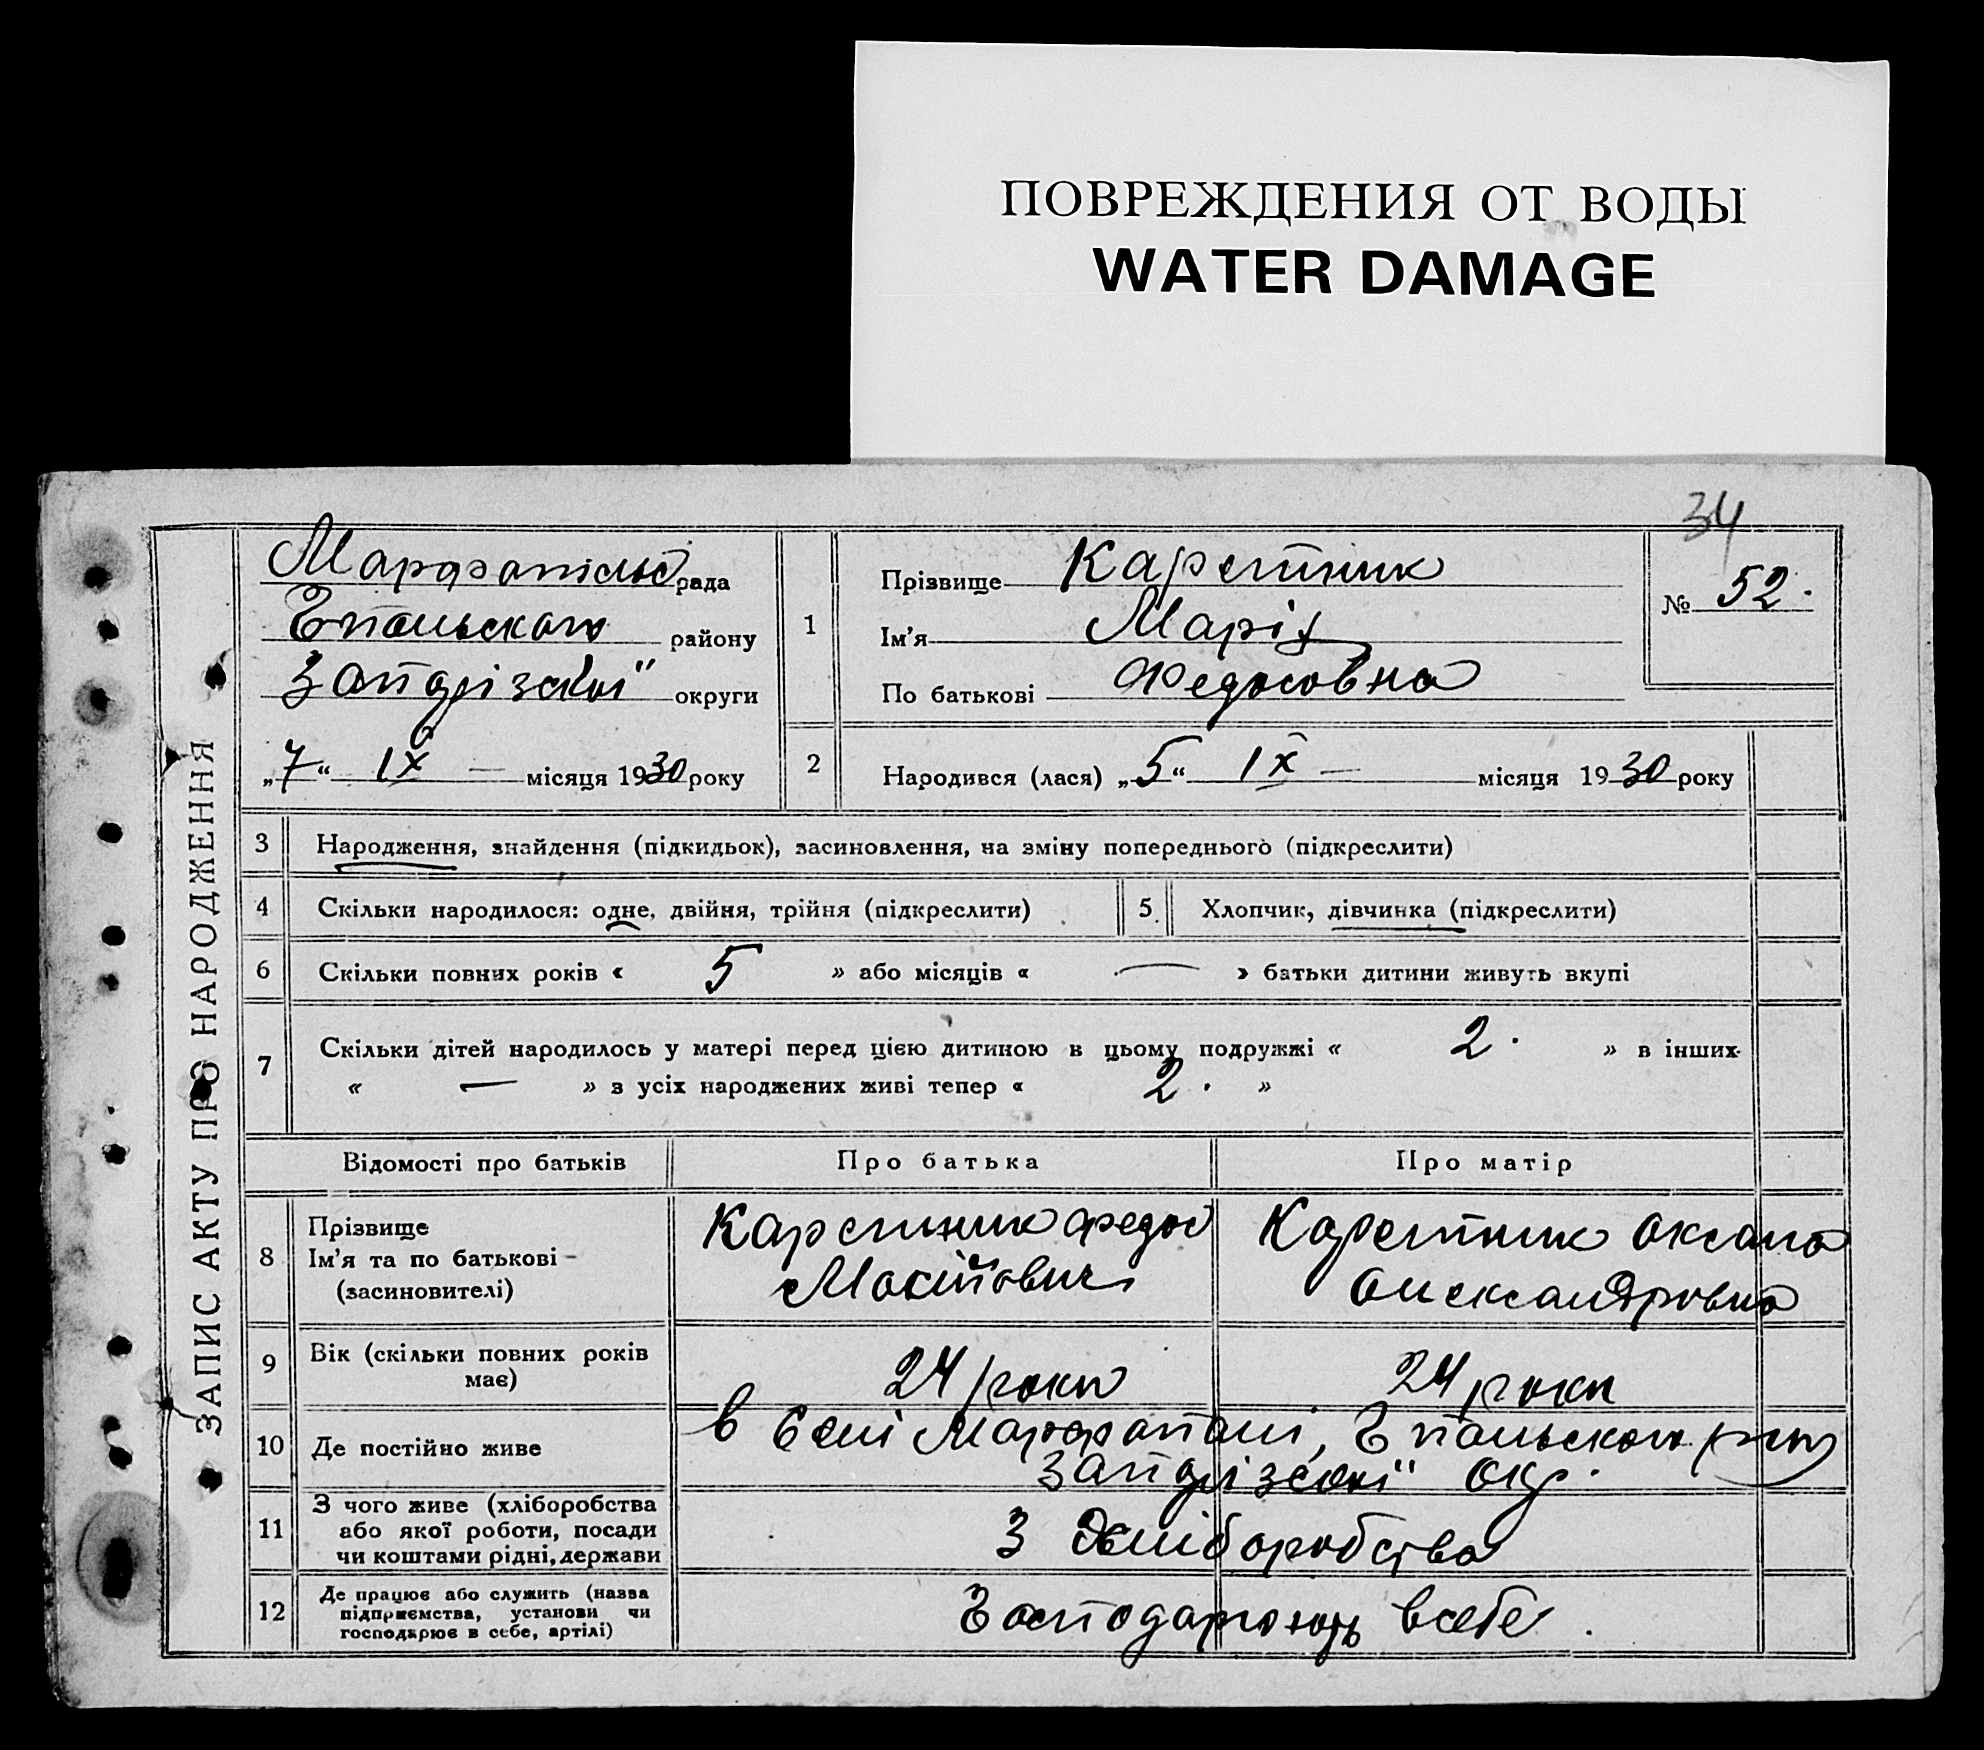 ПОВРЕЖДЕНИЯ ОТ ВОДЫ
WATER DAMAGE
34
ЗАПИС АКТУ ПРО НАРОДЖЕННЯ
Марфопільс рада
Гпільського району
Запорізської округи
„7“ IX — місяця 1930 року
1
Прізвище Каретник
Ім'я Марія
По батькові Федосовна
№ 52.
2 Народився (лася) „5“ IX — місяця 1930 року
3 Народження, знайдення (підкидьок), засиновлення, на зміну попереднього (підкреслити)
4 Скільки народилося: одне, двійня, трійня (підкреслити) 5. Хлопчик, дівчинка (підкреслити)
6 Скільки повних років « 5 » або місяців « — » батьки дитини живуть вкупі
7 Скільки дітей народилось у матері перед цією дитиною в цьому подружжі « 2. » в інших
« — » з усіх народжених живі тепер « 2. »
Відомості про батьків Про батька Про матір
8 Прізвище
Ім'я та по батькові
(засиновителі)
Каретник Федос
Мокійович
Каретник Оксана
Олександровна
9 Вік (скільки повних років має) 24 роки 24 роки
10 Де постійно живе в селі Марфополі, Гпільського р-ну
Запорізської окр.
11 З чого живе (хліборобства
або якої роботи, посади
чи коштами рідні, держави
З хліборобства
12 Де працює або служить (назва
підприємства, установи чи
господарює в себе, артілі)
Господарюють в себе.